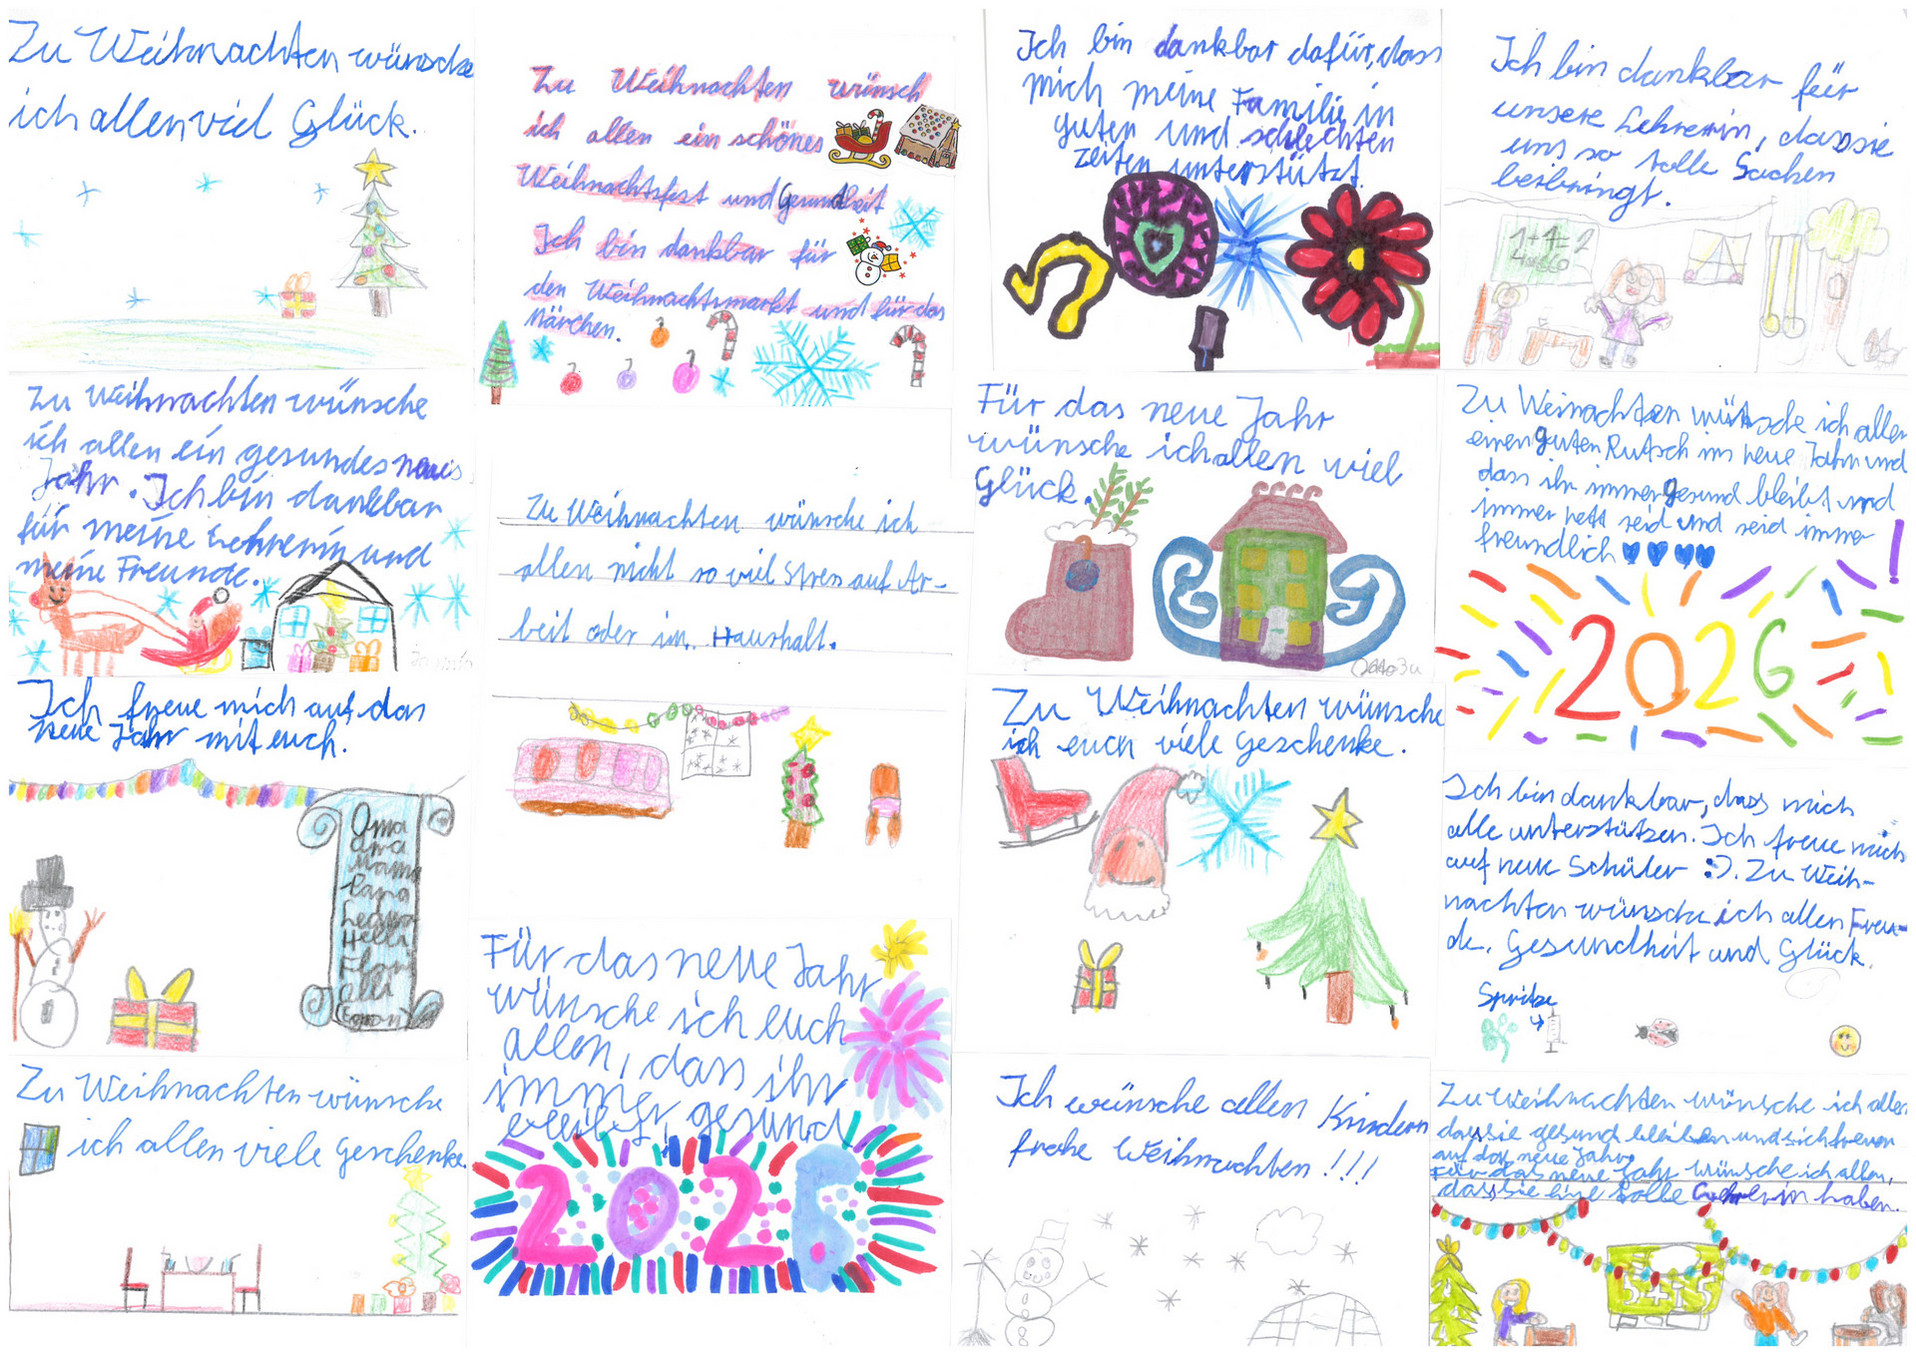 Zu Weihnachten wünsche
ich allen viel Glück.
Zu Weihnachten wünsch
ich allen ein schönes
Weihnachtsfest und Gesundheit
Ich bin dankbar für
den Weihnachtsmarkt und für das
Märchen.
Ich bin dankbar dafür, dass
mich meine Familie in
guten und schlechten
zeiten unterstützt.
Ich bin dankbar für
unsere Lehrerin, dass sie
uns so tolle Sachen
beibringt.
1+1=2
Zu Weihnachten wünsche
ich allen ein gesundes neues
Jahr. Ich bin dankbar
für meine Lehrerin und
meine Freunde.
Zu Weihnachten wünsche ich
allen nicht so viel Stress auf Ar-
beit oder im Haushalt.
Für das neue Jahr
wünsche ich allen viel
Glück.
Zu Weinachten wünsche ich allen
einen guten Rutsch ins neue Jahr und
dass ihr immer gesund bleibt und
immer nett seid und seid immer
freundlich
2026
Ich freue mich auf das
neue Jahr mit euch.
Oma
Opa
Mama
Papa
Zu Weihnachten wünsche
ich euch viele Geschenke.
Ich bin dankbar, dass mich
alle unterstützen. Ich freue mich
auf neue Schüler :). Zu Weih-
nachten wünsche ich allen Freu-
de, Gesundheit und Glück.
Spritze
Zu Weihnachten wünsche
ich allen viele Geschenke.
Für das neue Jahr
wünsche ich euch
allen, dass ihr
immer gesund
bleibt,
2026
Ich wünsche allen Kindern
frohe Weihnachten!!!
Zu Weihnachten wünsche ich allen
dass sie gesund bleiben und sich freuen
auf das neue Jahr.
Für das neue Jahr wünsche ich allen,
dass sie eine tolle Lehrerin haben.
5+15